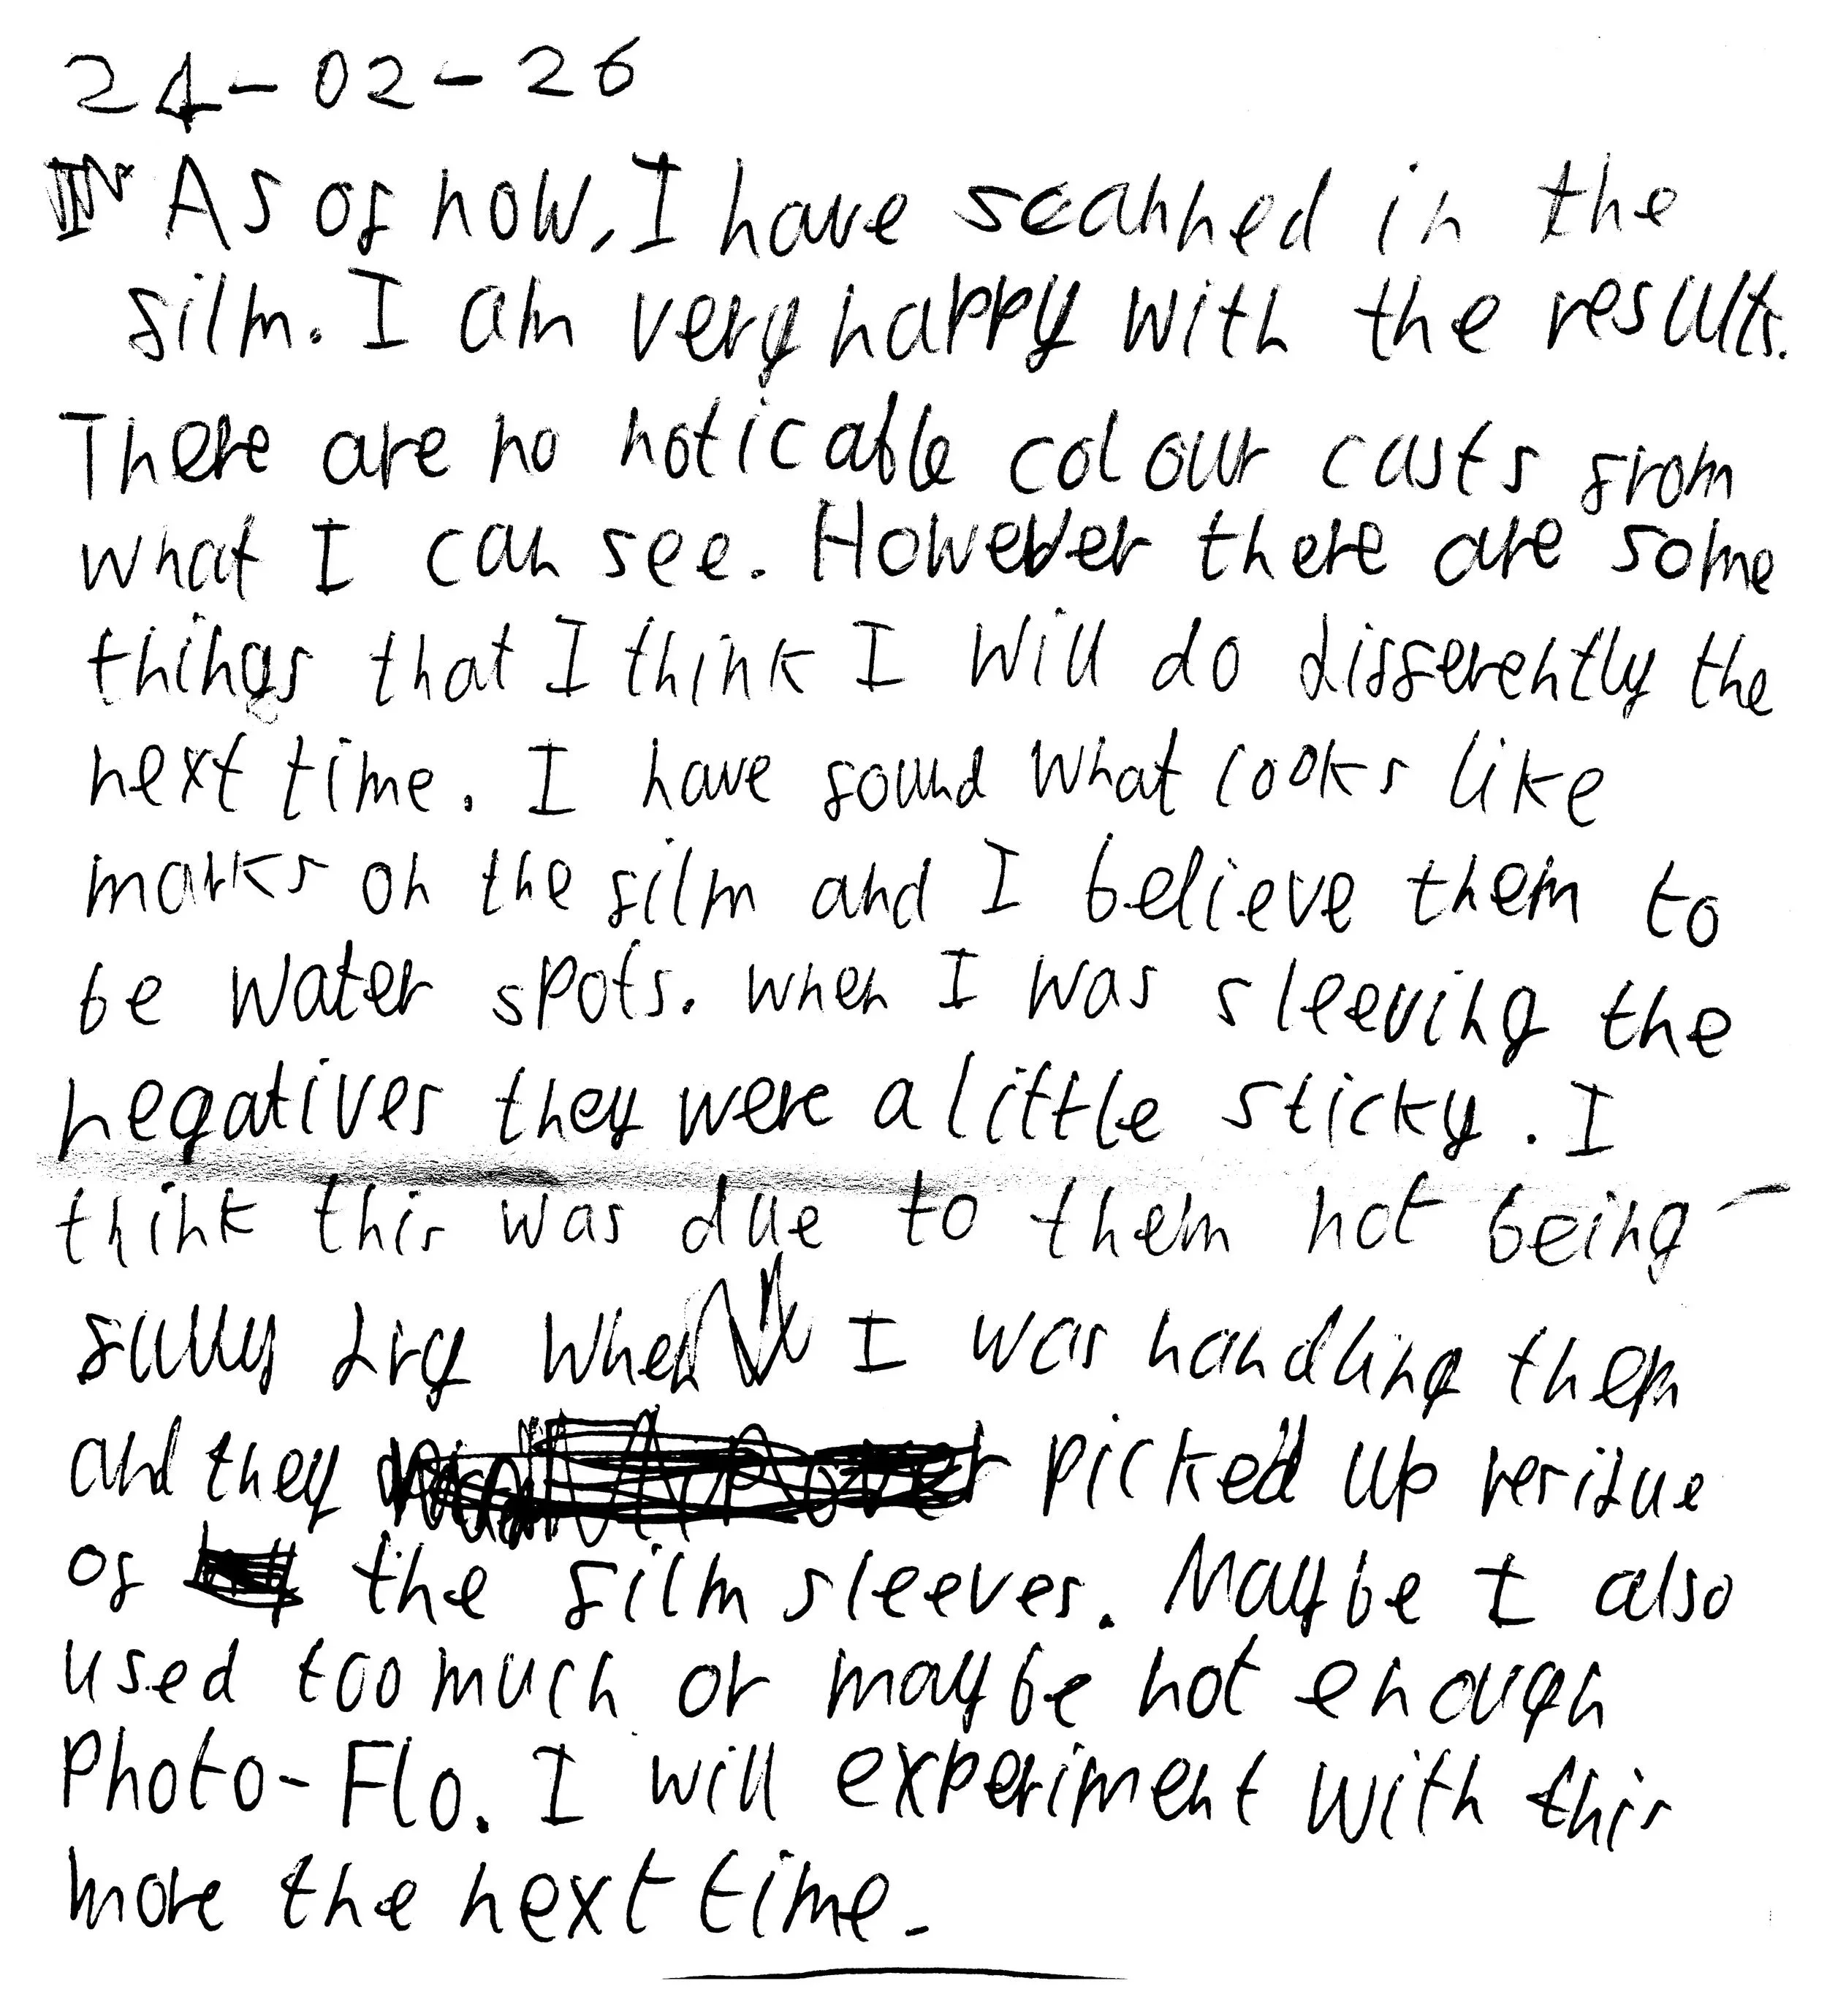 24-02-26
As of now, I have scanned in the
film. I am very happy with the results.
There are no noticable colour casts from
what I can see. However there are some
things that I think I will do differently the
next time. I have found what looks like
marks on the film and I believe them to
be water spots. when I was sleeving the
negatives they were a little sticky. I
think this was due to them not being
fully dry when I was handling them
and they picked up residue
of the film sleeves. Maybe I also
used too much or maybe not enough
Photo-Flo. I will experiment with this
more the next time.